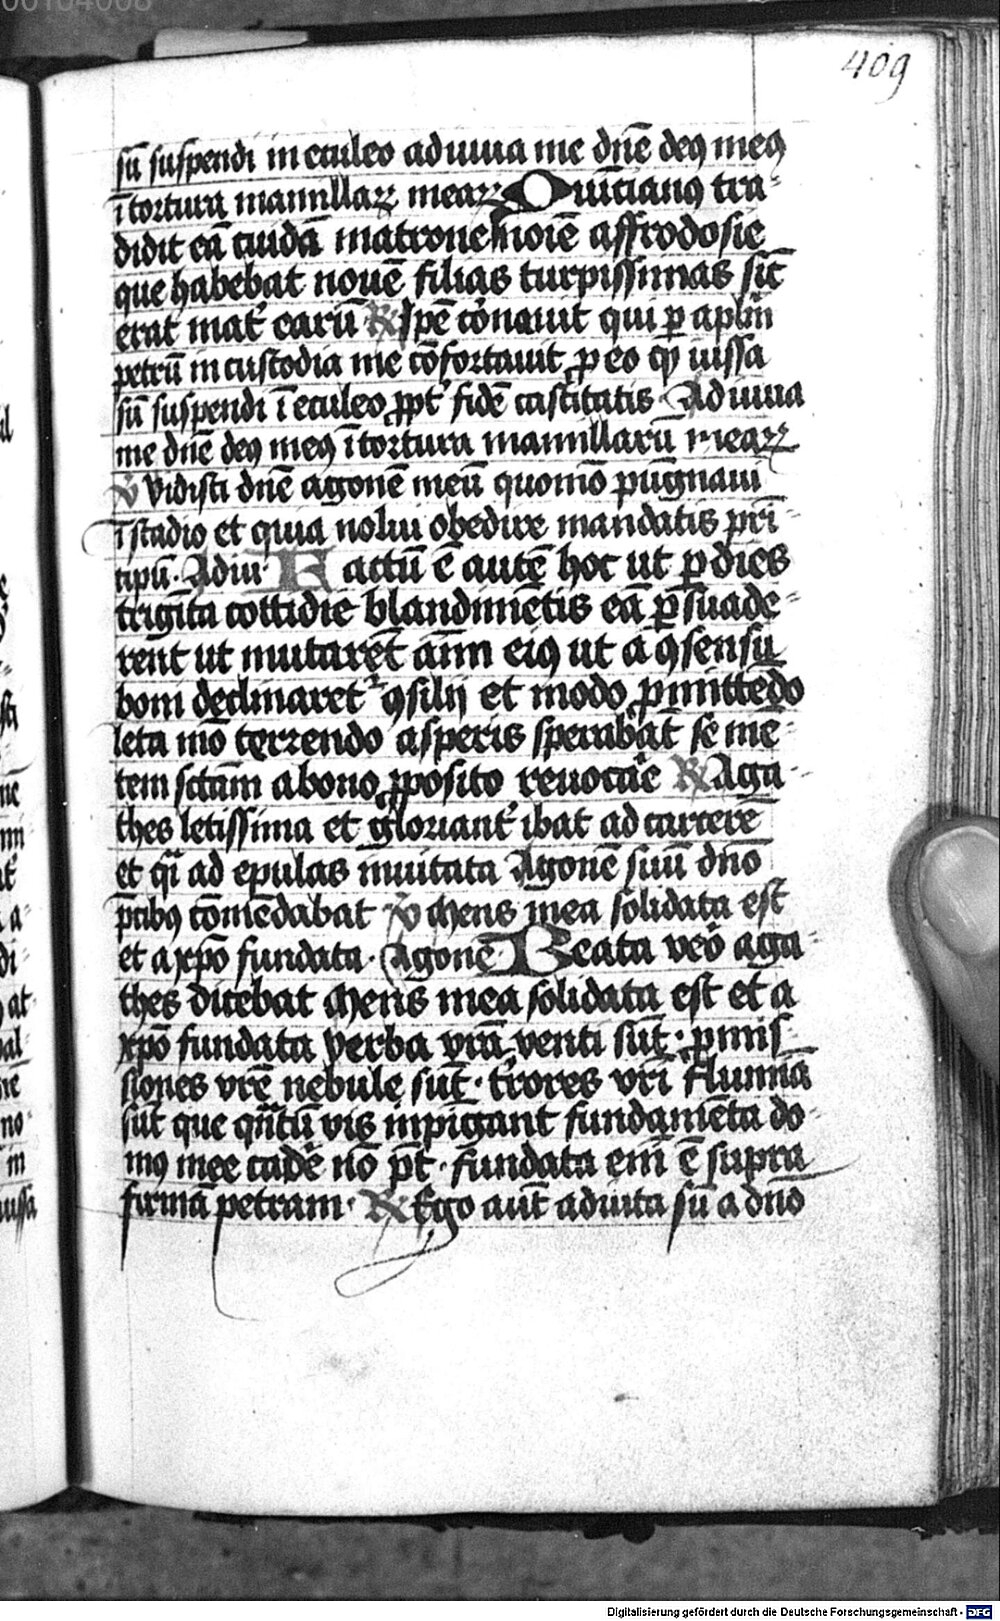 409
sū suspendi in eculeo adiuua me dnē deꝰ meꝰ
ī tortura mamillaꝝ meaꝝ Quītianꝰ tra-
didit eā cuidā matrone noīe affrodosie
que habebat nouē filias turpissimas sic̄
erat mat᷑ earū ℟ Ip̄e cōnauit qui ꝑ aplm̄
petrū in custodia me cōfortauit ꝓ eo qꝫ iussa
sū suspendi ī eculeo ꝓpt᷑ fidē castitatis. Adiuua
me dnē deꝰ meꝰ ī tortura mamillarū meaꝝ
℣ Vidisti dnē agonē meū quomō pugnaui
ī stadio et quia nolui obedire mandatis pri-
cipū. Adiu. Factū ē autē hoc ut ꝑ dies
triginta cottidie blandimētis eā ꝑsuade-
rent ut mutarēt aīm eiꝰ ut a ꝯsensu
boni declinaret ꝯsilij et modo ꝓmittēdo
leta mō terrendo asperis sperabāt se mē-
tem sctām a bono ꝓposito reuocar̄e ℟ Aga-
thes letissima et gloriant᷑ ibat ad carcerē
et qͥ ad epulas inuitata Agonē suū dnō
p̄cibꝰ cōmēdabat ℣ Mens mea solidata est
et a xp̄o fundata. Agonē Beata vero aga-
thes dicebat Mens mea solidata est et a
xp̄o fundata verba vrā venti sūt. ꝓmis-
siones vrē nebule sūt. t᷑rores vrī flumiā
sūt que qn̄tū vis inpigant fundamēta do-
mꝰ mee cadē nō p̄t. fundata em̄ ē supra
firmā petram. ℟ Ego aūt adiuta sū a dnō
Digitalisierung gefördert durch die Deutsche Forschungsgemeinschaft - DFG